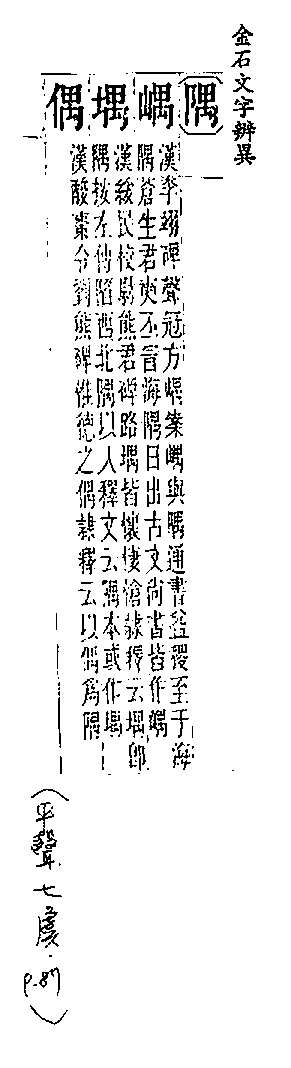 金石文字辨異
隅
嵎
堣
偶
漢李翊碑聲冠方嵎案嵎與隅通書益稷至于海
隅蒼生君奭丕冒海隅日出古文尚書皆作嵎
漢繁民校尉熊君碑路堣皆懷悽愴隸釋云堣即
隅按左傳陷西北隅以入釋文云隅本或作堣
漢酸棗令劉熊碑惟德之偶隸釋云以偶為隅
(平聲七虞.
P.87)